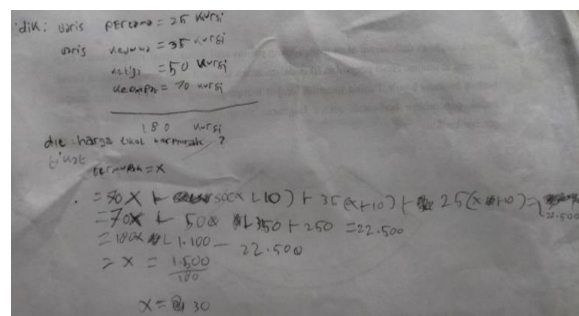 dik: baris pertama = 25 kursi
baris kedua = 35 kursi
ketiga = 50 kursi
keempat = 70 kursi
180 kursi
dit harga tiket termurah ?
tiket
termurah = x
= 70x + 50(x+10) + 35(x+10) + 25(x+10) = 22.500
= 70x + 500 + 350 + 250 = 22.500
= 180x + 1.100 - 22.500
= x = 1.500
180
x = 30